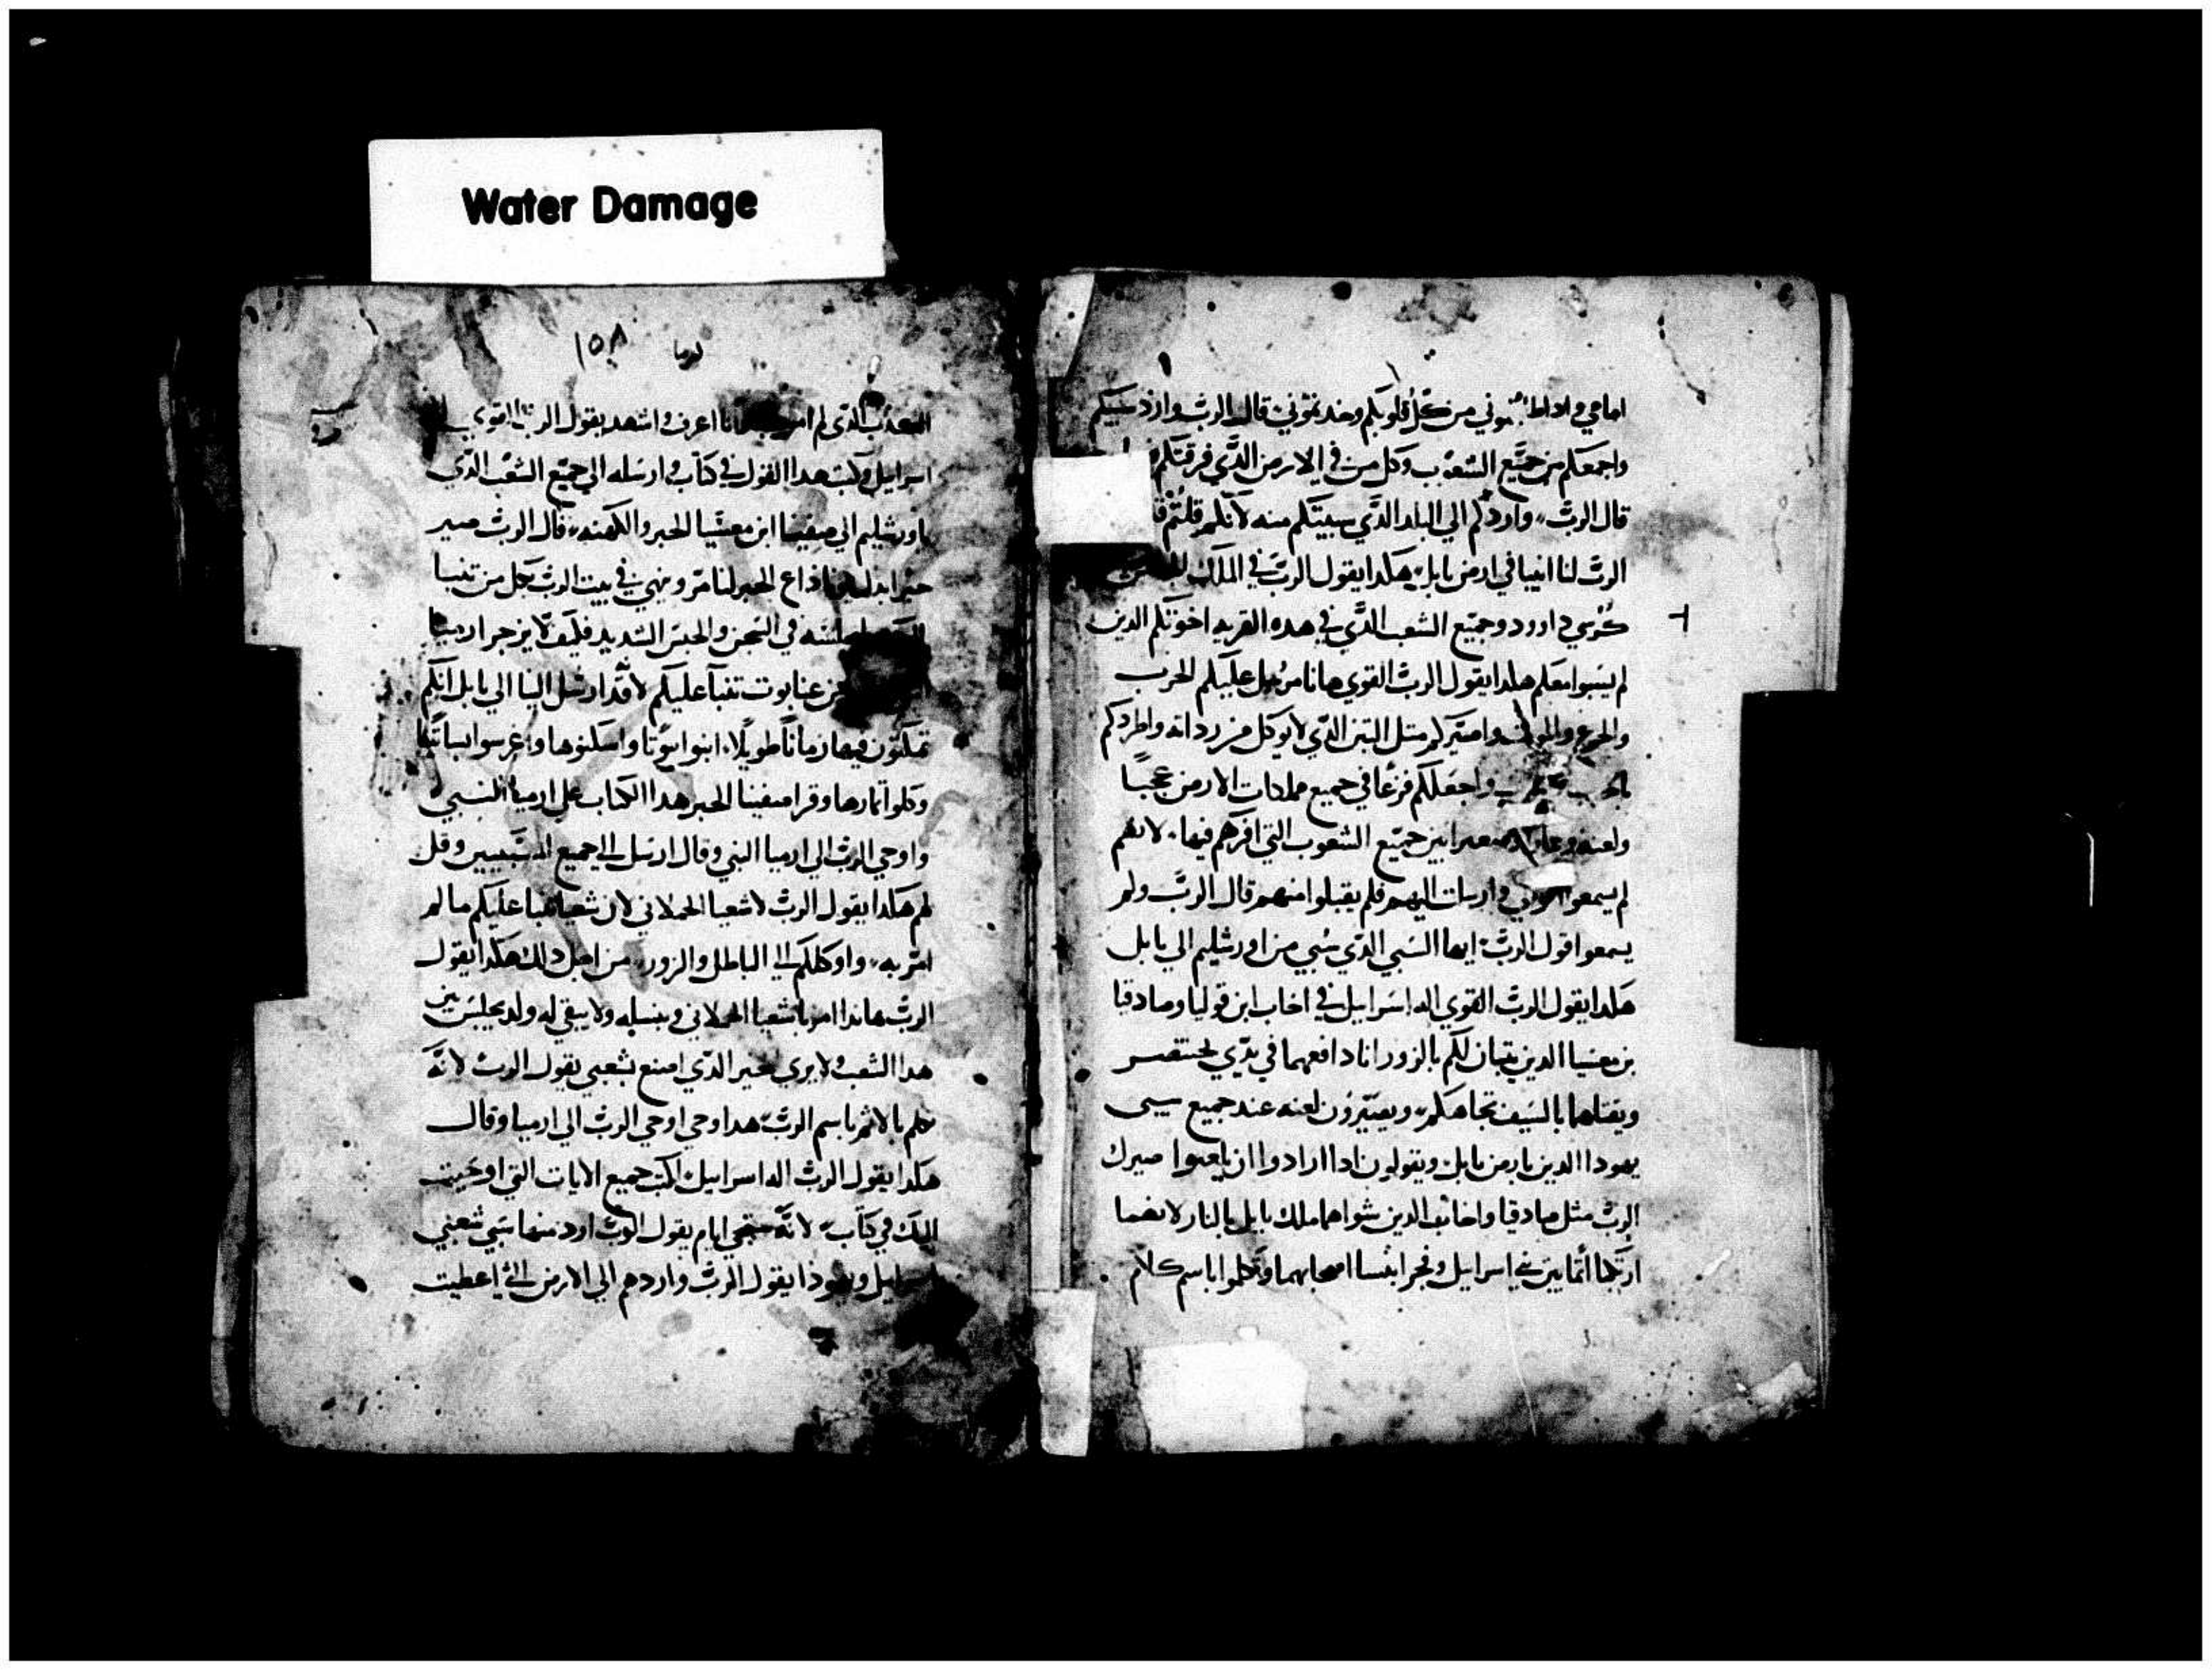 Water Damage
امامي واذا طلبتموني من كل قلوبكم وجدتموني قال الرب واردّ سبيكم
واجمعكم من جميع الشعوب وكل من في الارض الذي فرقتكم
قال الرب واردكم الي البلد الذي سبيتكم منه لانكم قلتم
الرب لنا انبيا في ارض بابل هكدا يقول الرب في الملك
كرسي داوود وجميع الشعب الذي في هده القريه اخوتكم الدين
لم يسبوا معكم هكدا يقول الرب القوي هانا مرسل عليكم الحرب
والجوع والموت واصيركم متل التين الذي لا يوكل من رداته واطردكم
واجعلكم فزعًا في جميع مملكات الارض عجبًا
ولعنه بين جميع الشعوب التي افرقهم فيها لانهم
لم يسمعوا وارسلت اليهم فلم يقبلوا منهم قال الرب ولم
يسمعوا قول الرب ايها السبي الذي سُبي من اورشليم الي بابل
هكدا يقول الرب القوي اله اسرايل في اخاب ابن قوليا وصادقيا
بن معسيا الدين يتنبان لكم بالزور انا دافعهما في يدي بختنصر
ويقتلهما بالسيف تجاهكم ويصيرون لعنه عند جميع سبي
يهودا الدين بارض بابل ويقولون ادا ارادوا ان يلعنوا صيرك
الرب مثل صادقيا واخاب الدين شواهما ملك بابل بالنار لانهما
ارتكبا اثما بين في اسرايل وفجرا بنسا اصحابهما وتكلموا باسم كلام
١٥٨ ارميا
الذي لم اعرف واشهد يقول الرب القوي
اسرايل وكتب هدا القول في كتاب وارسله الي جميع الشعب الذي
باورشليم الي صفينا ابن معسيا الحبر والكهنه قال الرب صير
حبرا بدل الحبر لنا مر ونهي في بيت الرب كل من تنبا
في السجن والحبس الشديد فكيف لا يزجر ارميا
من عنابوت تنبا عليكم لانه قد ارسل الينا الي بابل انكم
تمكثون فيها زمانًا طويلا ابنوا بيوتا واسكنوها واغرسوا بساتينًا
وكلوا ثمارها وقرا صفينا الحبر هدا الكتاب علي ارميا النبي
واوحي الرب الي ارميا النبي وقال ارسل الي جميع المسبيين وقل
لهم هكدا يقول الرب لاشعيا الحملاني لان شعيا تنبا عليكم ما لم
امر به واوكلكم الي الباطل والزور من اجل دلك هكدا يقول
الرب هاندا امر باشعيا الحملاني وبنسله ولا يبقي له ولد يجلس بين
هدا الشعب ولا يري الخير الذي اصنع بشعبي يقول الرب لانه
تكلم بالاثم باسم الرب هدا وحي اوحي الرب الي ارميا وقال
هكدا يقول الرب اله اسرايل اكتب جميع الايات التي اوحيت
اليك في كتاب لانه ستجي ايام يقول الرب اردد منها سبي شعبي
اسرايل ويهودا يقول الرب واردهم الي الارض التي اعطيت